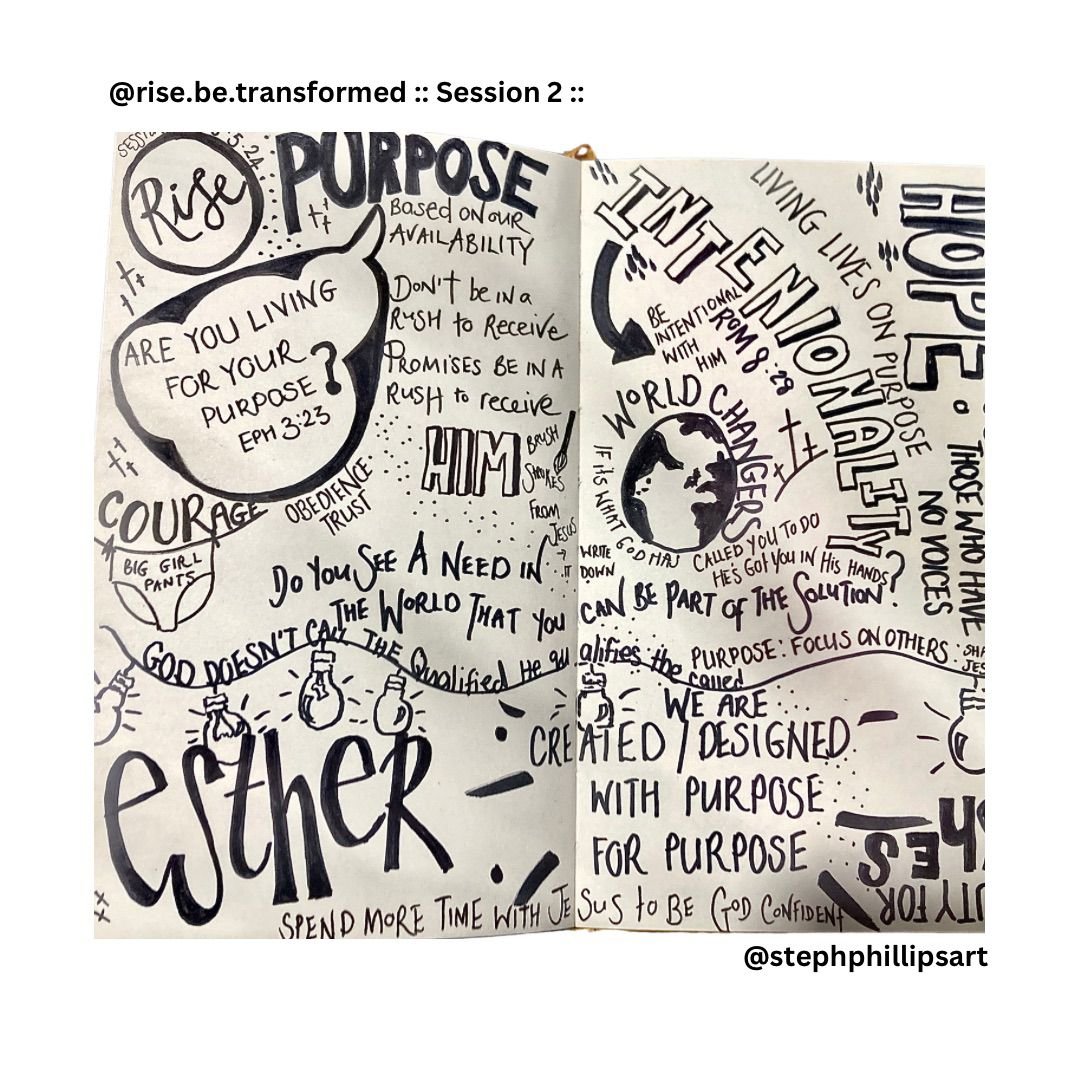 @rise.be.transformed :: Session 2 ::
5.24
Rise
PURPOSE
BASED ON OUR
AVAILABILITY
DON'T be in a
RUSH to Receive
PROMISES BE IN A
RUSH to receive
HIM
BRUSH
STROKES
FROM
JESUS
ARE YOU LIVING
FOR YOUR
PURPOSE?
EPH 3:23
OBEDIENCE
TRUST
COURAGE
BIG GIRL
PANTS
INTENIONALITY
LIVING LIVES ON PURPOSE
BE
INTENTIONAL
WITH
HIM
ROM 8:28
WORLD CHANGERS
IF its WHAT GOD HAS CALLED YOU TO DO
HE'S GOt YOU IN HIS HANDS
WRITE
IT
DOWN
HOPE
THOSE WHO HAVE
NO VOICES
DO YOU SEE A NEED IN
THE WORLD THAT YOU CAN BE PART of THE SOLUTION?
PURPOSE: FOCUS ON OTHERS
GOD DOESN'T CALL THE Qualified He qualifies the called
esthER
WE ARE
CREATED / DESIGNED
WITH PURPOSE
FOR PURPOSE
SPEND MORE TIME WITH JESUS to BE GOD CONFIDENT
@stephphillipsart